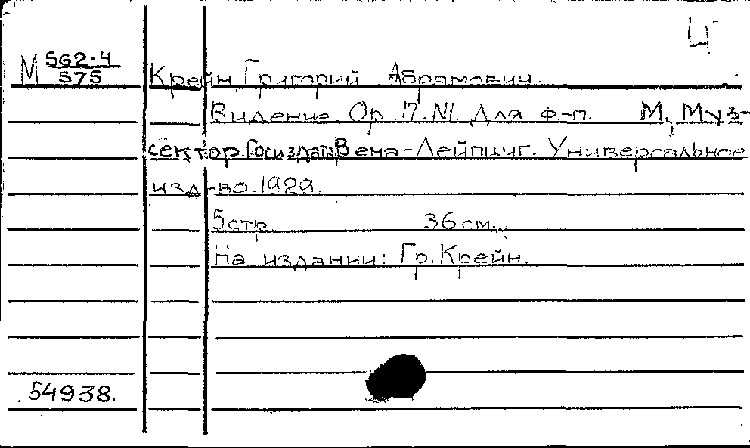 Ц
М 562-4
575
Крейн, Григорий Абрамович.
Видение. Ор. 17. N1. Для ф-п. М., Муз-
сектор Госиздат; Вена-Лейпциг. Универсальное
изд-во. 1929.
5 стр. 36 см.
На издании: Гр. Крейн.
54938.